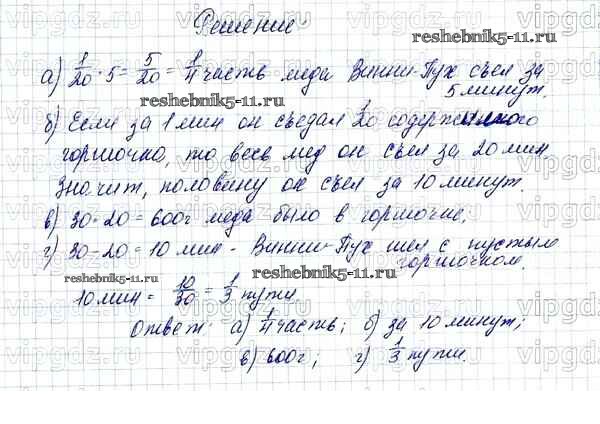 Решение
а) 1/20 · 5 = 5/20 = 1/4 часть меда Винни-Пух съел за
5 минут.
reshebnik5-11.ru
reshebnik5-11.ru
б) Если за 1 мин он съедал 1/20 содержимого
горшочка, то весь мед он съел за 20 мин
Значит, половину он съел за 10 минут.
в) 30 · 20 = 600г меда было в горшочке.
г) 30 - 20 = 10 мин - Винни-Пух шел с пустым
горшочком.
reshebnik5-11.ru
reshebnik5-11.ru
10 мин = 10/30 = 1/3 пути
Ответ: а) 1/4 часть; б) за 10 минут;
в) 600г; г) 1/3 пути.